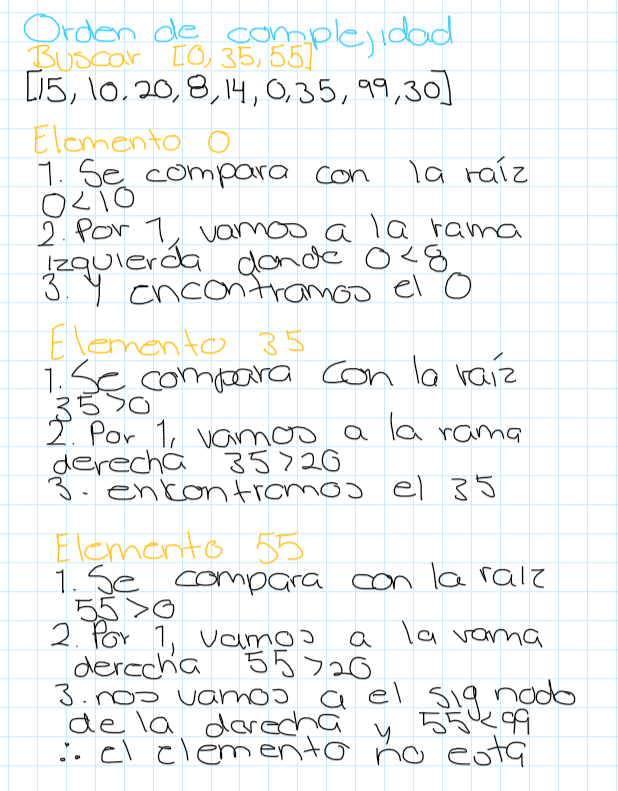 Orden de complejidad
Buscar [0, 35, 55]
[15, 10, 20, 8, 14, 0, 35, 99, 30]
Elemento 0
1. Se compara con la raíz
0<10
2. Por 1, vamos a la rama
izquierda donde 0<8
3. Y encontramos el 0
Elemento 35
1. Se compara con la raíz
35>0
2. Por 1, vamos a la rama
derecha 35>20
3. enkontramos el 35
Elemento 55
1. Se compara con la raiz
55>0
2. Por 1, vamos a la rama
derecha 55>20
3. nos vamos a el sig nodo
de la darecha y 55<99
∴ el elemento no esta